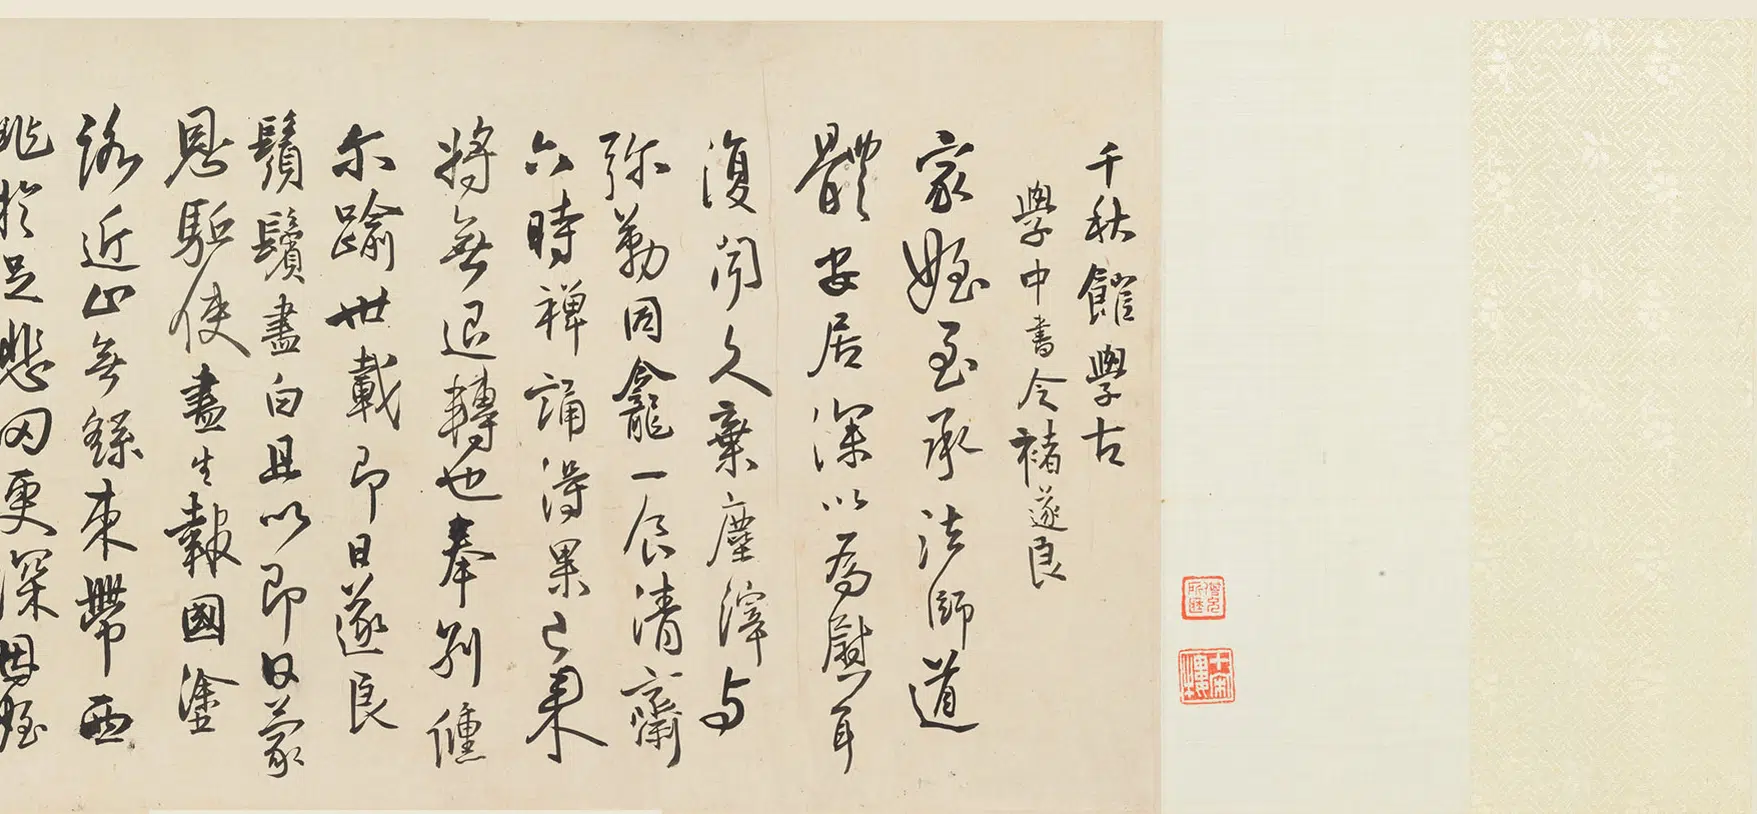 千秋館學古
學中書令褚遂良
家姪至承法師道
體安居深以為慰耳
復聞久棄塵滓与
弥勒同龕一食清齋
六時禪誦得果已來
將無退轉也奉別倐
尔踰卅載即日遂良
鬚鬢盡白且以即日蒙
恩驅使盡生報國塗
路近止無繇束帶西
眺於邑悲罔更深因姪